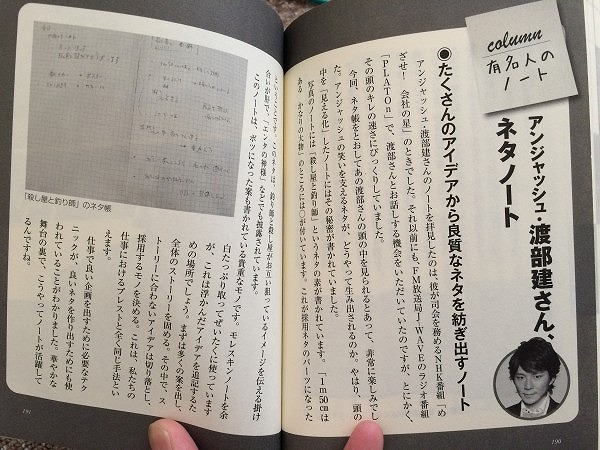 column
有名人の
ノート
アンジャッシュ・渡部建さん、
ネタノート
●たくさんのアイデアから良質なネタを紡ぎ出すノート
アンジャッシュ・渡部建さんのノートを拝見したのは、彼が司会を務めるNHK番組「め
ざせ! 会社の星」のときでした。それ以前にも、FM放送局J-WAVEのラジオ番組
「PLATOn」で、渡部さんとお話しする機会をいただいていたのですが、とにかく、
その頭のキレの速さにびっくりしていました。
今回、ネタ帳をとおしてあの渡部さんの頭の中を見られるとあって、非常に楽しみでし
た。アンジャッシュの笑いを支えるネタが、どうやって生み出されるのか。やはり、頭の
中を「見える化」したノートにはその秘密が書かれていました。
写真のノートには「殺し屋と釣り師」というネタの素が書かれています。「1m50cmは
ある かなりの大物」のところには〇が付いています。これが採用ネタのパーツになった
190
ということです。このネタは、釣り師と殺し屋がお互い狙っているイメージを伝える掛け
合いが肝で、「エンタの神様」などでも披露されています。
このノートは、ボツになった案も書かれている貴重なモノです。モレスキンノートを余
白たっぷり取ってぜいたくに使っています
が、これは浮かんだアイデアを追記するた
めの場所でしょう。まずは多くの案を出し、
全体のストーリーを固める。その中で、ス
トーリーに合わないアイデアは切り落とし、
採用するモノを決める。これは、私たちの
仕事におけるブレストと全く同じ手法とい
えます。
仕事で良い企画を出すために必要なテク
ニックが、良いネタを作り出すためにも使
われていることがわかりました。華やかな
舞台の裏で、こうやってノートが活躍して
るんですね。
「殺し屋と釣り師」のネタ帳
191